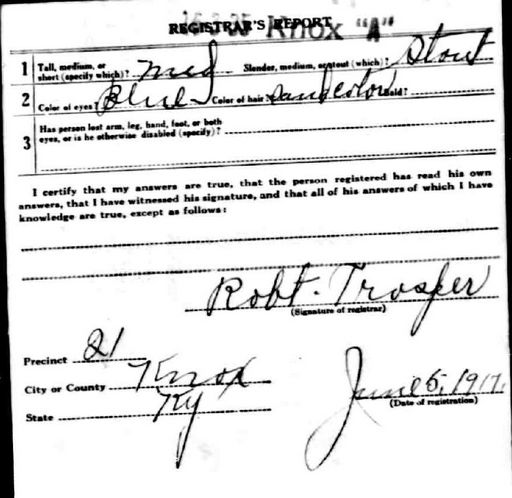 REGISTRAR'S REPORT
Knox "A"
1 Tall, medium, or short (specify which)? med Slender, medium, or stout (which)? Stout
2 Color of eyes? Blue Color of hair? sand color Bald?
3 Has person lost arm, leg, hand, foot, or both eyes, or is he otherwise disabled (specify)?
I certify that my answers are true, that the person registered has read his own
answers, that I have witnessed his signature, and that all of his answers of which I have
knowledge are true, except as follows:
Robt. Trosper
(Signature of registrar)
Precinct 21
City or County Knox
State Ky
June 5, 1917.
(Date of registration)